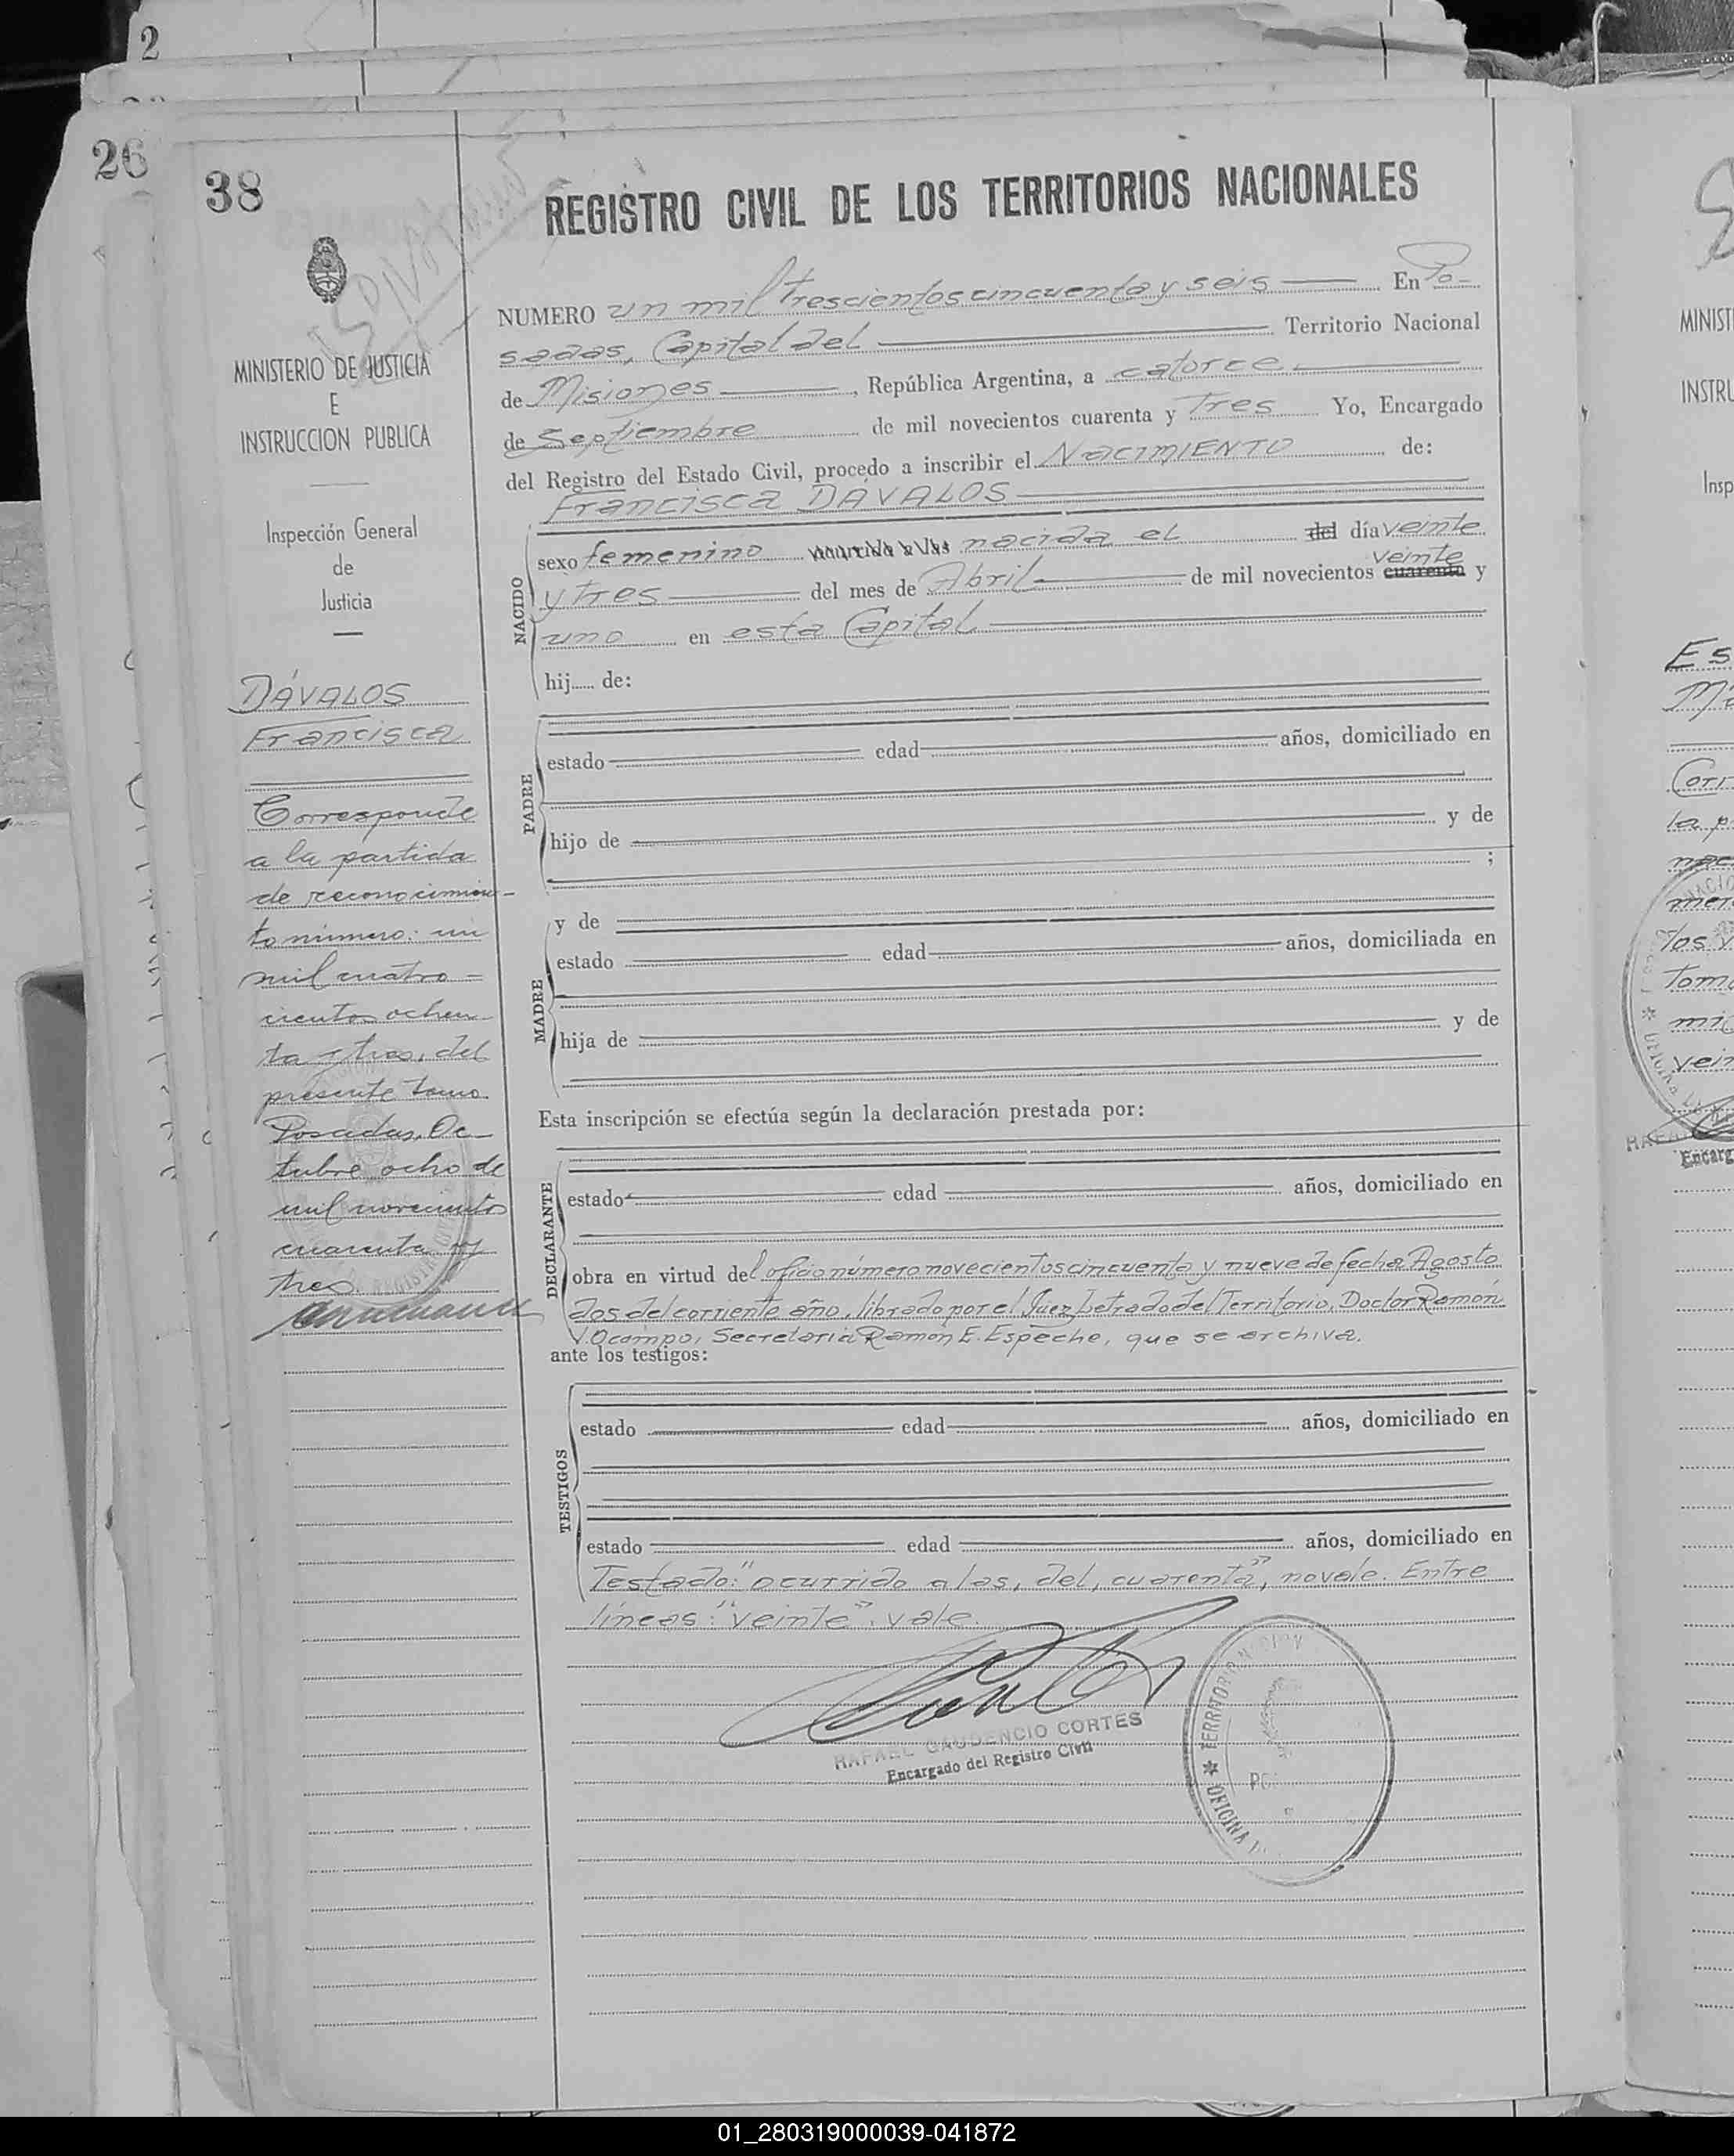 2
26
38
REGISTRO CIVIL DE LOS TERRITORIOS NACIONALES
NUMERO un mil trescientos cincuenta y seis En Po-
sadas, Capital del Territorio Nacional
de Misiones, República Argentina, a catorce
de Septiembre de mil novecientos cuarenta y Tres Yo, Encargado
del Registro del Estado Civil, procedo a inscribir el NACIMIENTO de:
Francisca DÁVALOS
NACIDO
sexo femenino ocurrido a las nacida el del día veinte
veinte
y tres del mes de Abril de mil novecientos cuarenta y
uno en esta Capital
hij de:
PADRE
estado edad años, domiciliado en
hijo de y de
;
MADRE
y de
estado edad años, domiciliada en
hija de y de
Esta inscripción se efectúa según la declaración prestada por:
DECLARANTE
estado edad años, domiciliado en
obra en virtud del oficio número novecientos cincuenta y nueve de fecha Agosto
dos del corriente año, librado por el Juez Letrado del Territorio, Doctor Ramón
V. Ocampo, Secretaria Ramón E. Espeche, que se archiva.
ante los testigos:
TESTIGOS
estado edad años, domiciliado en
estado edad años, domiciliado en
Testado: "ocurrido a las, del, cuarenta", no vale. Entre
líneas: "veinte": vale.
RAFAEL GAUDENCIO CORTES
Encargado del Registro Civil
TERRITORIO
OFICINA
MINISTERIO DE JUSTICIA
E
INSTRUCCION PUBLICA
Inspección General
de
Justicia
DÁVALOS
Francisca
Corresponde
a la partida
de reconocimien-
to número: un
mil cuatro-
cientos ochen-
ta y tres, del
presente tomo.
Posadas, Oc-
tubre ocho de
mil novecientos
cuarenta y
tres.
MINIST
INSTRU
Insp
Es
Corr
la p
los
Tom
mi
vein
Encarg
01_280319000039-041872